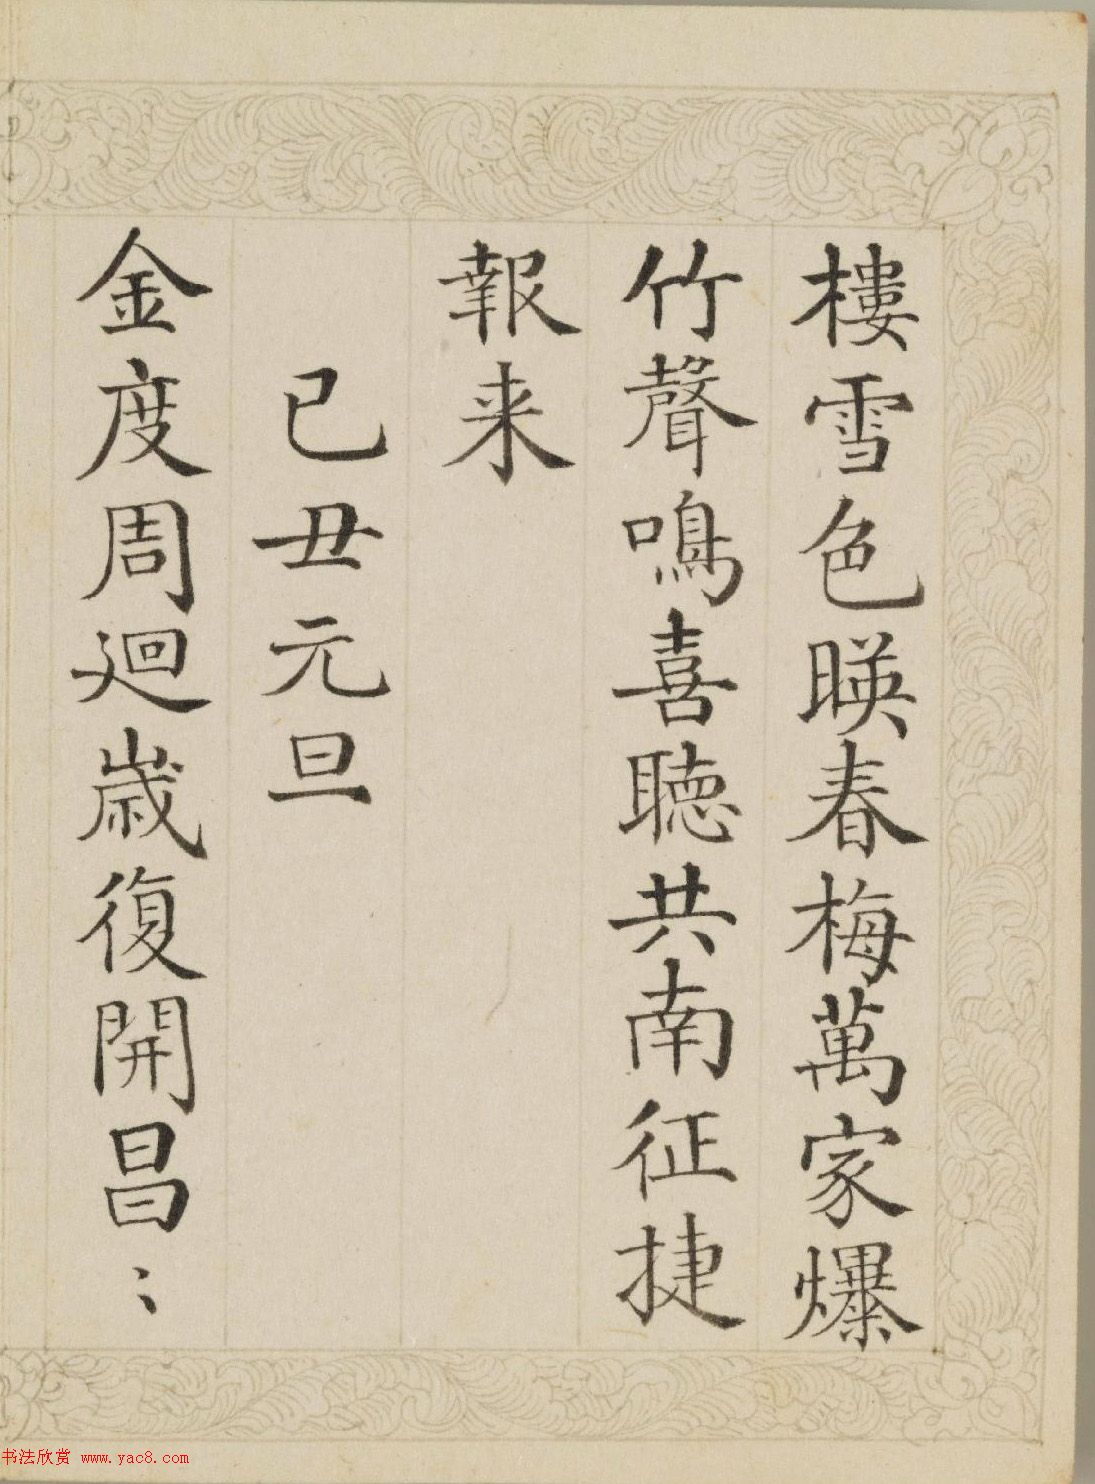 樓雪色暎春梅萬家爆
竹聲鳴喜聴共南征捷
報来
已丑元旦
金度周迴歲復開昌〻
书法欣赏 www.yac8.com